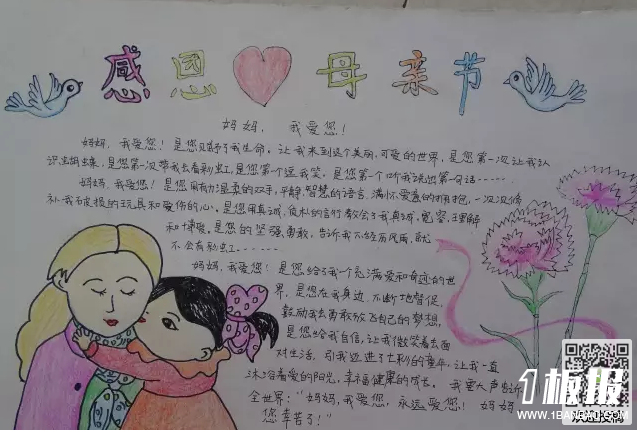 感恩 母亲节
妈妈，我爱您！
妈妈，我爱您！是您赋予了我生命，让我来到这个美丽，可爱的世界，是您第一次让我认
识蝴蝶，是您第一次带我去看彩虹，是您第一个逗我笑，是您第一个听我说出第一句话……
妈妈，我爱您！是您用有力温柔的双手，平静，智慧的语言，满怀爱意的拥抱，一次次修
补我破损的玩具和受伤的心。是您用真诚，质朴的言行教会了我真诚，宽容，理解
和博爱，是您的坚强勇敢，告诉我不经历风雨，就
不会有彩虹……
妈妈，我爱您！是您给了我一个充满爱和奇迹的世
界，是您在我身边，不断地督促，
鼓励我去勇敢放飞自己的梦想，
是您给我自信，让我微笑着去面
对生活，引我迈进了七彩的童年，让我一直
沐浴着爱的阳光，幸福健康的成长。我要大声告诉
全世界：“妈妈，我爱您，永远爱您！妈妈
您辛苦了！”
1板报
WWW.1BANBAO.COM
欢迎投稿